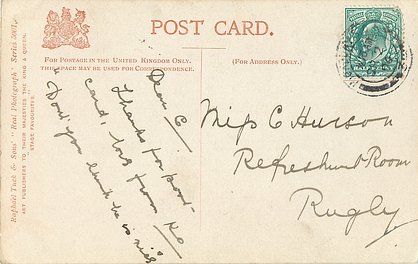 POST CARD.
FOR POSTAGE IN THE UNITED KINGDOM ONLY,
THIS SPACE MAY BE USED FOR CORRESPONDENCE.
(FOR ADDRESS ONLY.)
Raphael Tuck & Sons' "Real Photograph" Series 5001.
ART PUBLISHERS TO THEIR MAJESTIES THE KING & QUEEN.
"STAGE FAVOURITES"
Dear C
Thanks for post-
card, love from
Dont you think he is nice
Miss C Hurson
Refreshment Room
Rugby